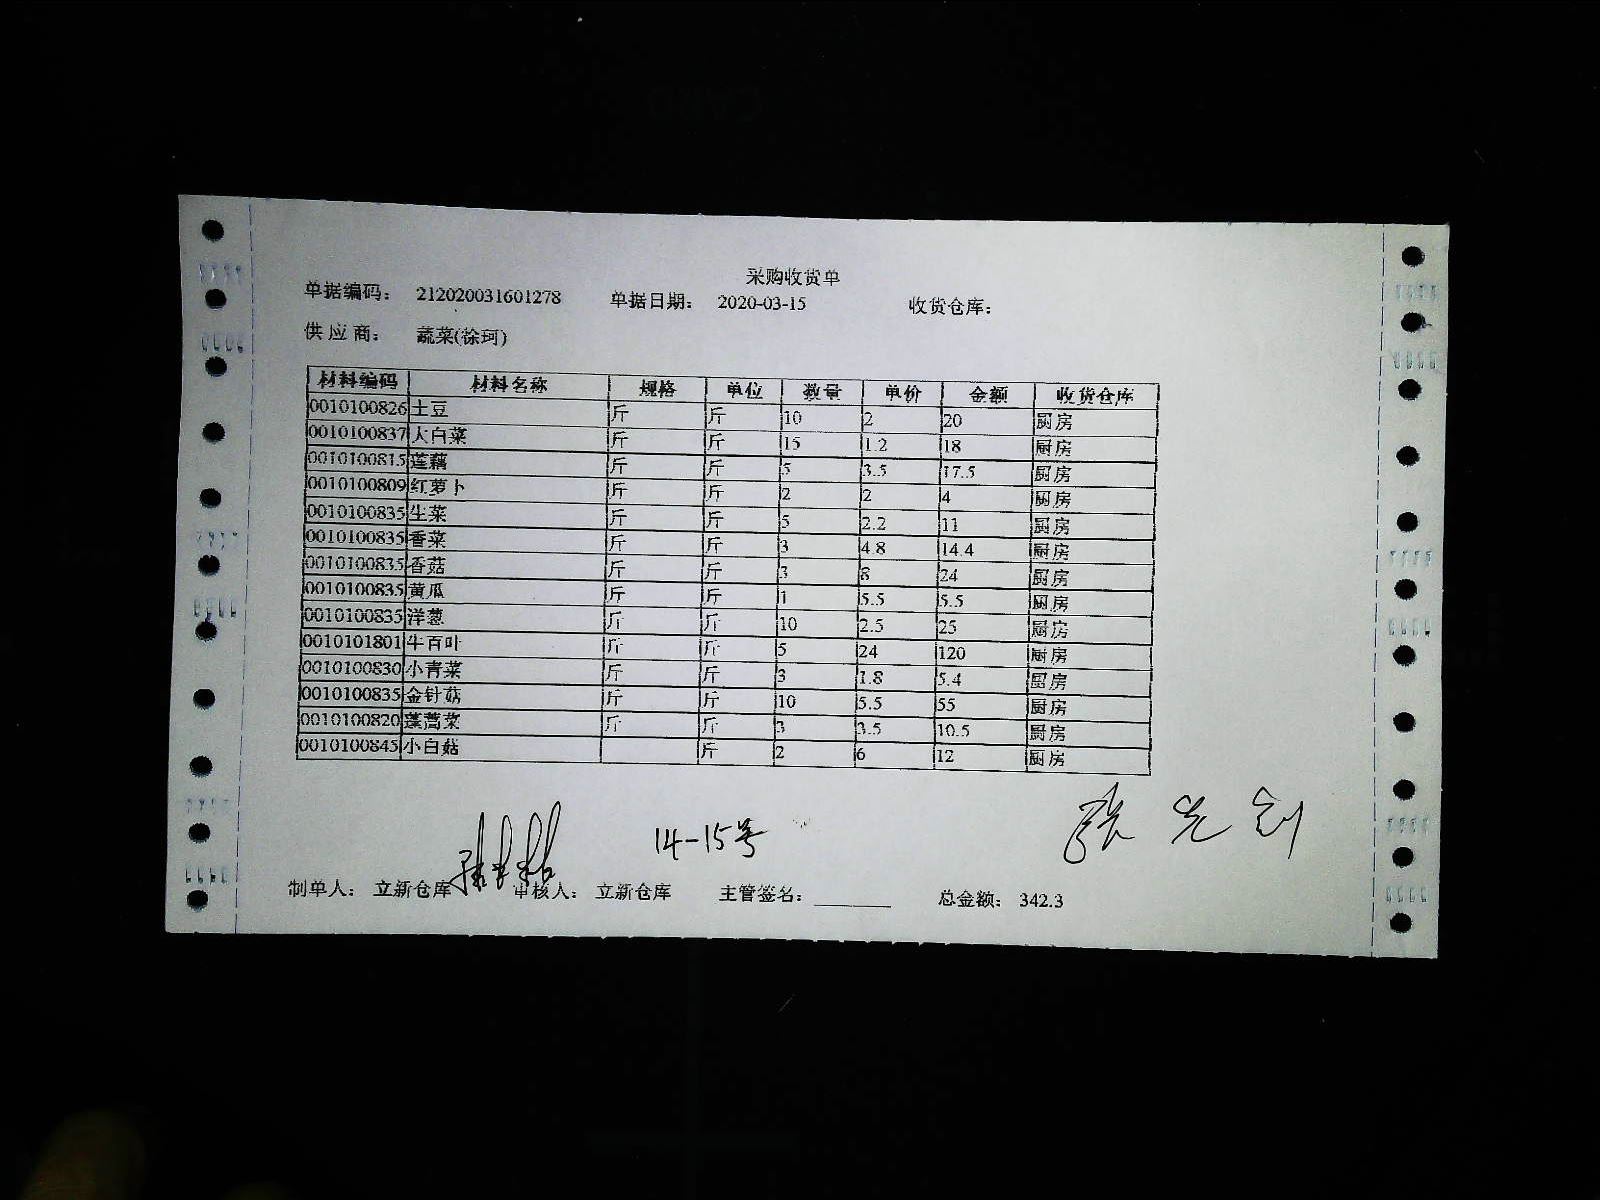 采购收货单
单据编码： 212020031601278 单据日期： 2020-03-15 收货仓库：
供 应 商： 蔬菜(徐珂)
材料编码 材料名称 规格 单位 数量 单价 金额 收货仓库
0010100826 土豆 斤 斤 10 2 20 厨房
0010100837 大白菜 斤 斤 15 1.2 18 厨房
0010100815 莲藕 斤 斤 5 3.5 17.5 厨房
0010100809 红萝卜 斤 斤 2 2 4 厨房
0010100835 生菜 斤 斤 5 2.2 11 厨房
0010100835 香菜 斤 斤 3 4.8 14.4 厨房
0010100835 香菇 斤 斤 3 8 24 厨房
0010100835 黄瓜 斤 斤 1 5.5 5.5 厨房
0010100835 洋葱 斤 斤 10 2.5 25 厨房
0010101801 牛百叶 斤 斤 5 24 120 厨房
0010100830 小青菜 斤 斤 3 1.8 5.4 厨房
0010100835 金针菇 斤 斤 10 5.5 55 厨房
0010100820 蓬蒿菜 斤 斤 3 3.5 10.5 厨房
0010100845 小白菇 斤 2 6 12 厨房
14-15号
制单人： 立新仓库 审核人： 立新仓库 主管签名： 总金额： 342.3